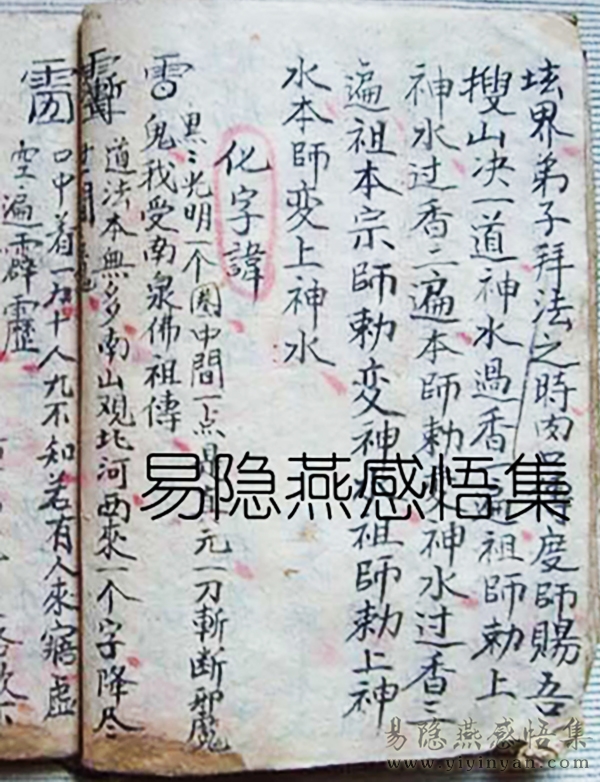 坛界弟子拜法之時肉 度師賜吾
搜山决一道神水過香一遍祖師勅上
神水过香二遍本師勅 神水过香三
遍祖本宗師勅变神 祖師勅上神
水本師变上神水
化字諱
黑黑光明一个圈中間一点 元一刀斬断邪魔
鬼我受南泉佛祖傳
道法本無多南山观北河西來一个字降尽
口中着一九十人九不知若有人來竊虚
空遍霹靂
易隐燕感悟集
易隐燕感悟集
www.yiyinyan.com